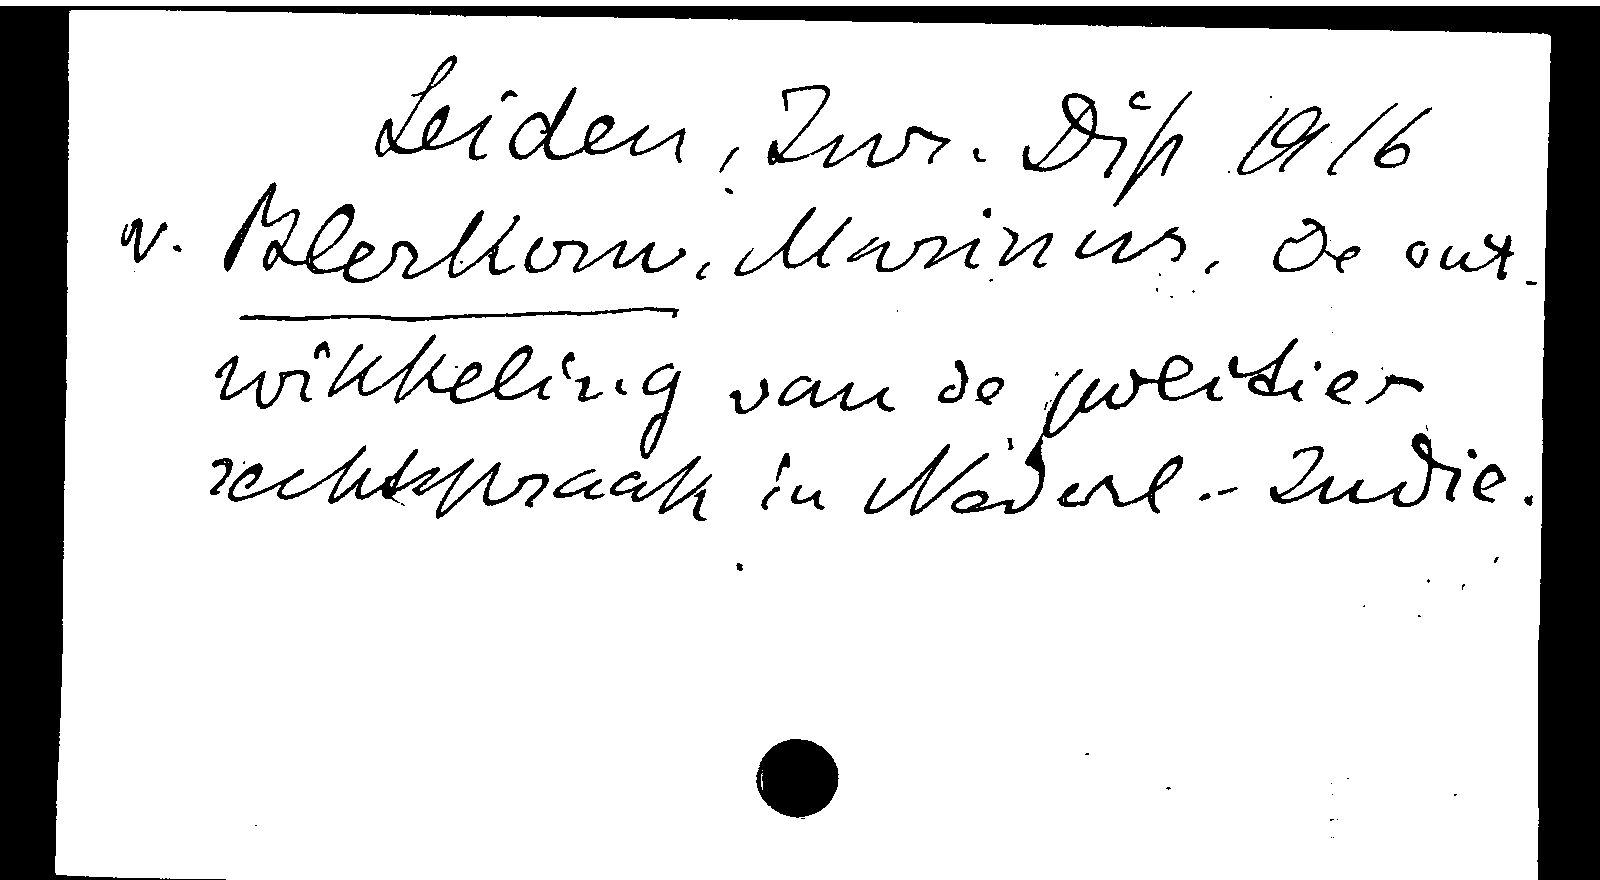 Leiden, Jur. Diss 1916
v. Blerkom, Marinus, De ont-
wikkeling van de politier
rechtspraak in Nederl.-Indie.